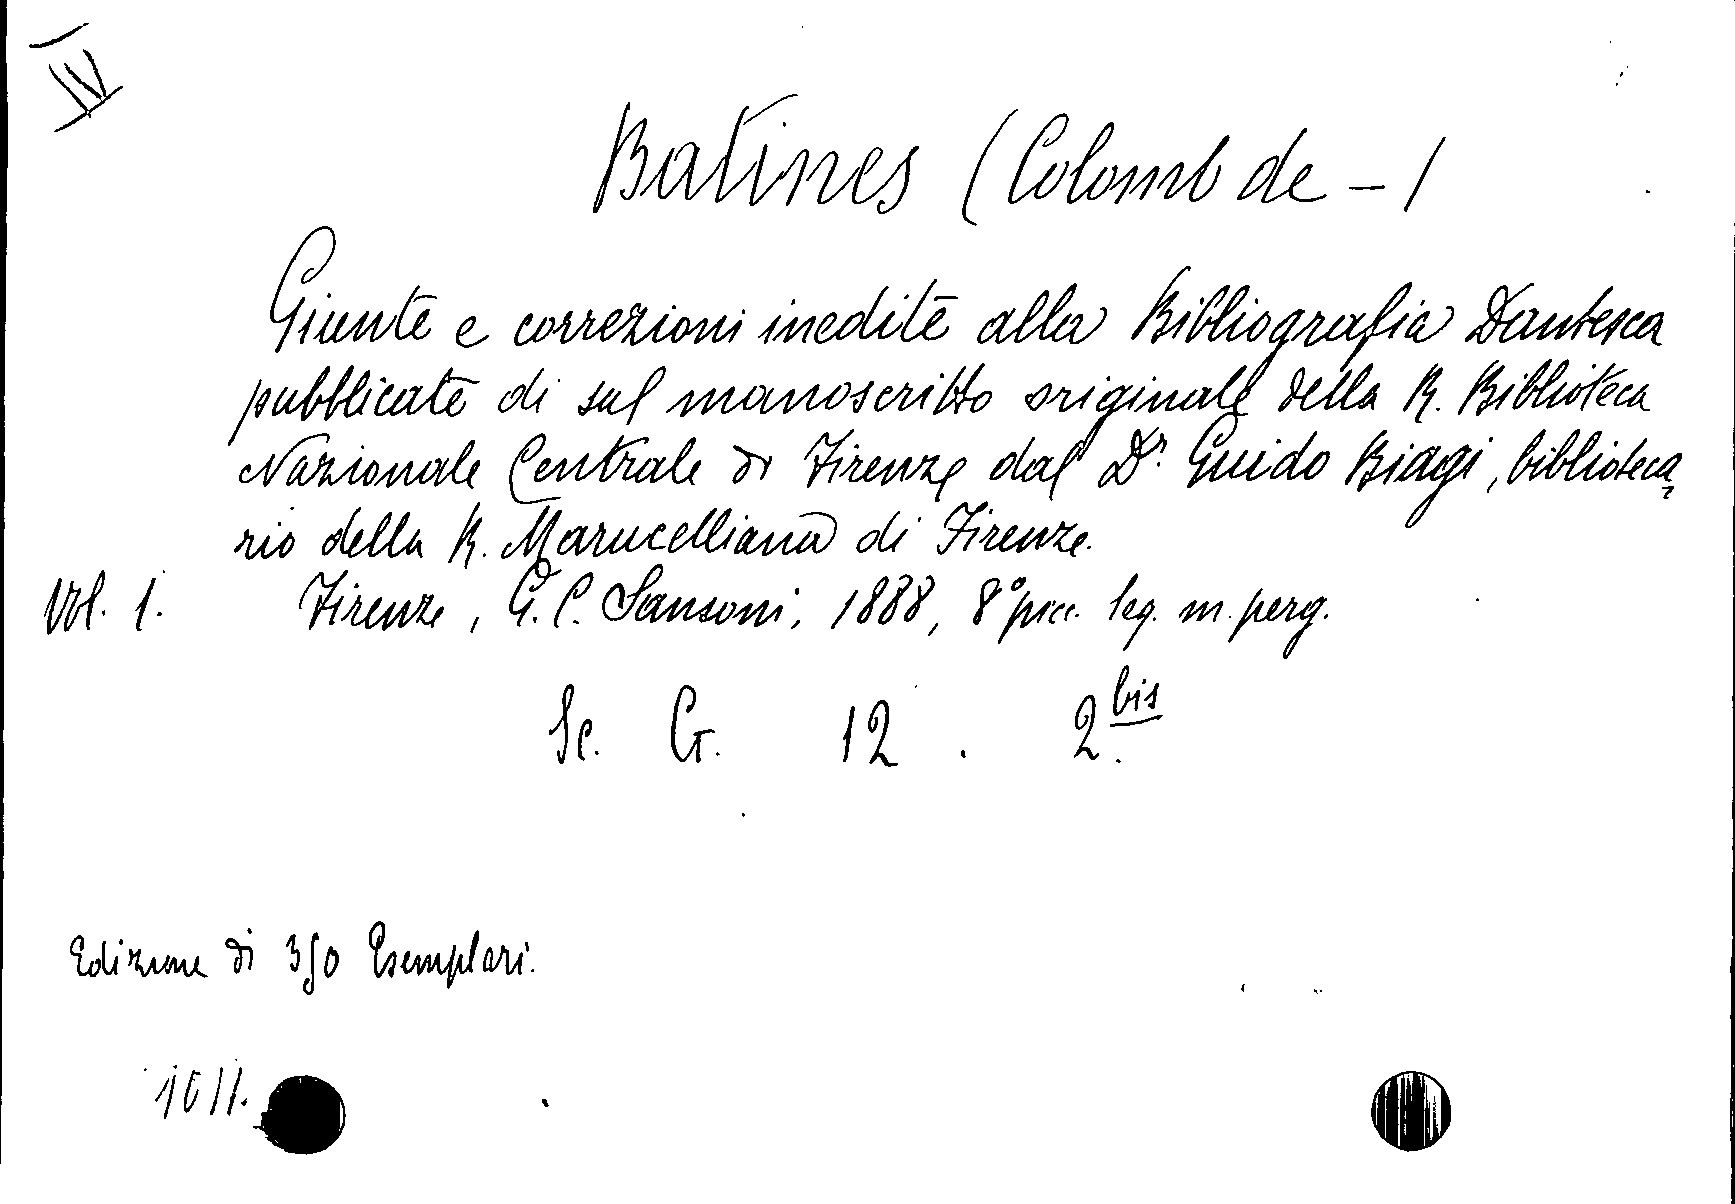 IV
Batines (Colomb de - )
Giunte e correzioni inedite alla Bibliografia Dantesca
pubblicate di sul manoscritto originale della R. Biblioteca
Nazionale Centrale di Firenze dal Dr. Guido Biagi, biblioteca
rio della R. Marucelliana di Firenze.
Vol. 1. Firenze, G. C. Sansoni, 1888, 8° picc. leg. m. perg.
Sc. G. 12. 2.bis
Edizione di 350 Esemplari.